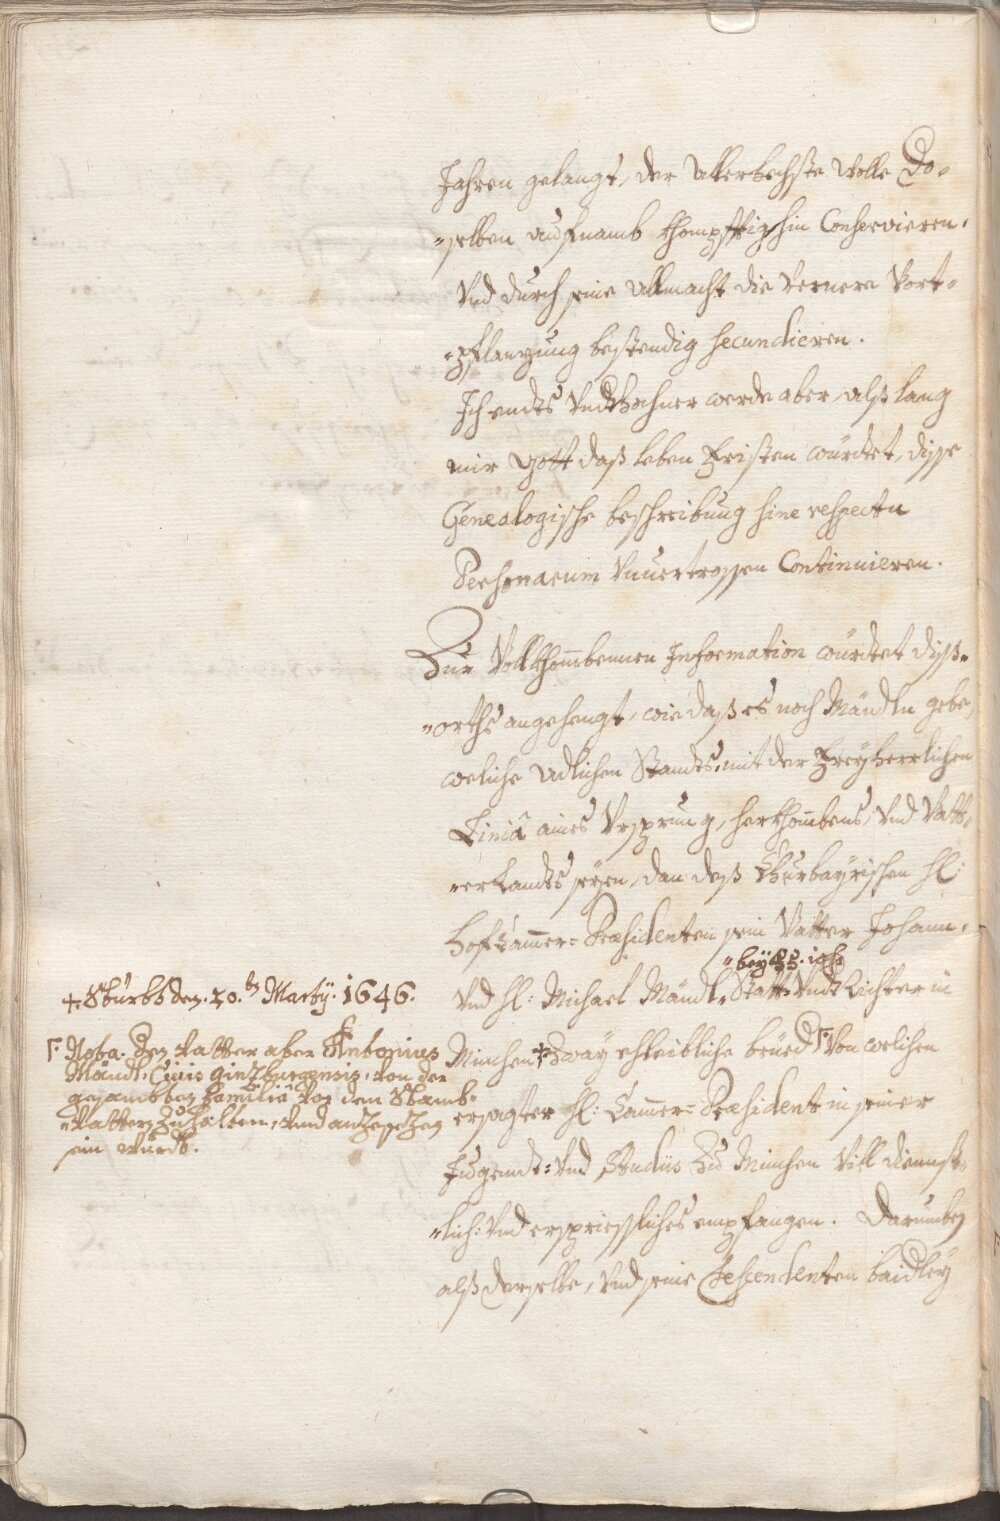 Jahren gelangt, der Allerhechste wolle Do-
selben auf Znamb khompfftighin Conservieren.
Vnd durch seine Allmacht die vernere Vort-
pflanzung bestendig secundieren.
Ich endts Vndschribner werde aber, alß lang
mir Gott daß leben Fristen würdtet, disse
Genealogische beschreibung sine respectu
Personarum Vnuertrossen Continuieren.
Zur Vollkhombennen Information würdtet diß-
orths angehengt, wie daß es noch Mändln gebe,
weliche Adlichen Standts, mit der Freyherrlichen
Liniâ aines Vrsprung, herkhombens, vnd Vatt-
erlandts seyen, dan deß Churbayrischen hl:
hof Camer= Præsidenten sein Vatter Johann,
vnd hl: Michael Mändl, Statt= vndt Richter in
München + zway ehleibliche brüed Γ: von welichen
ersagter hl: Camer= Præsident in seiner
Jugendt: vnd Studiis zu München Vill dienst-
lich: vnd erspriessliches empfangen. Darumben
alß derselbe, vnd seine Descendenten baidley
+. Sturb den. 20.ten Martÿ. 1646.
Γ: Nota. Den vatter aber Antonius
Mändl, Civis Ginzburgensis, von der
gesambten Familiâ vor dem Stamb-
vattern zuhalten, vnd anzusezen
sein würdt.